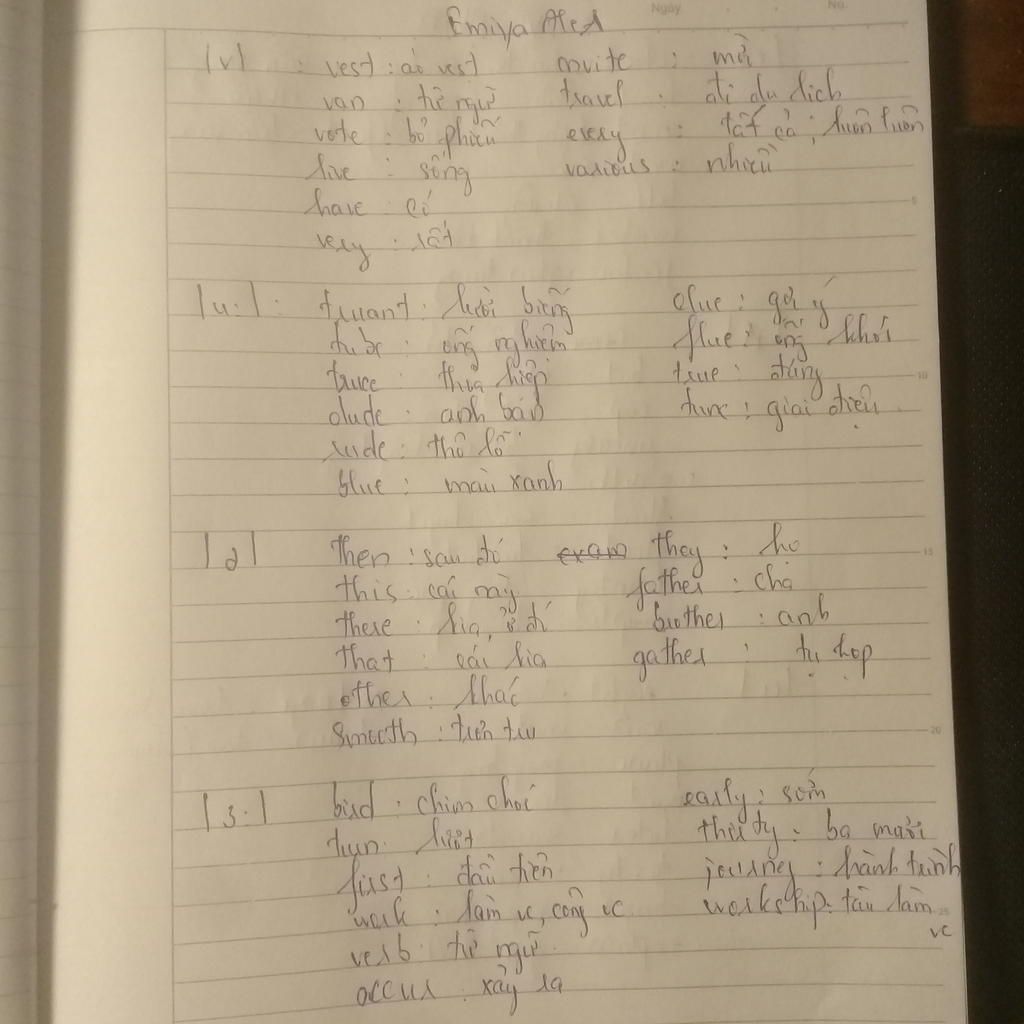 Ngày No.
Emiya
/v/ : vest : áo vest invite : mời
van : từ ngữ travel : đi du lịch
vote : bỏ phiếu every : tất cả, luôn luôn
live : sống various : nhiều
have : có
very : rất
/u:/ : truant : lười biếng clue : gợi ý
tube : ống nghiệm flue : ống khói
truce : thỏa hiệp true : đúng
dude : anh bạn tune : giai điệu
rude : thô lỗ
blue : màu xanh
then : sau đó they : họ
this : cái này father : cha
there : kia, ở đó brother : anh
that : cái kia gather : tụ họp
other : khác
smooth : trơn tru
/3:/ bird : chim chóc early : sớm
turn : lượt thirty : ba mươi
first : đầu tiên journey : hành trình
work : làm vc, công vc workship : tàu làm
vc
verb : từ ngữ
occur : xảy ra
5
10
15
20
25